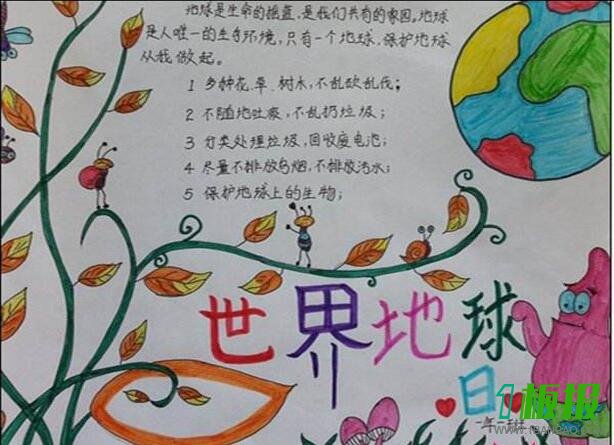 地球是生命的摇蓝,是我们共有的家园。地球
是人唯一的生存环境,只有一个地球,保护地球
从我做起。
1 多种花、草、树木,不乱砍乱伐;
2 不随地吐痰,不乱扔垃圾;
3 分类处理垃圾,回收废电池;
4 尽量不排放乌烟,不排放污水;
5 保护地球上的生物;
世界地球
日
板报